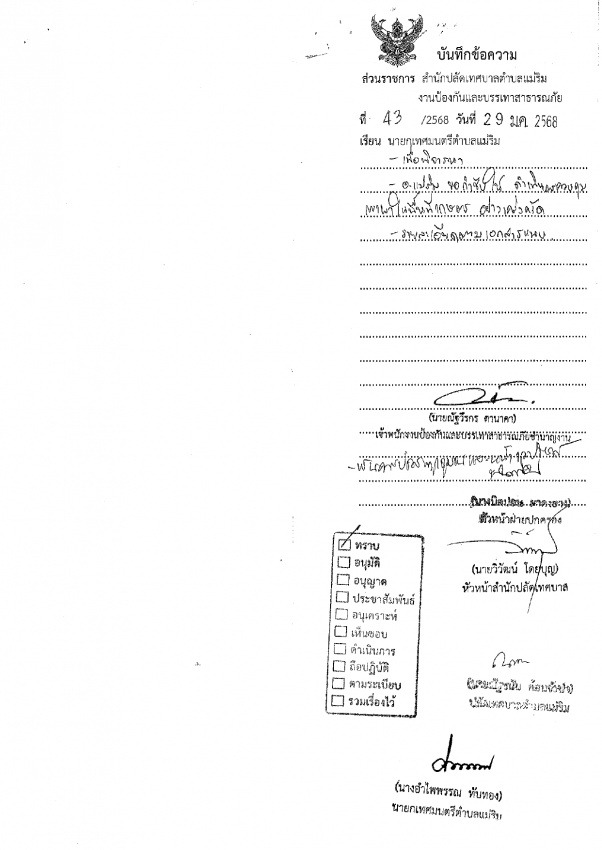 บันทึกข้อความ
ส่วนราชการ สำนักปลัดเทศบาลตำบลแม่ริม
งานป้องกันและบรรเทาสาธารณภัย
ที่ 43 /2568 วันที่ 29 มค. 2568
เรียน นายกเทศมนตรีตำบลแม่ริม
- เพื่อพิจารณา
- อ.แม่ริม ขอกำชับให้ ดำเนินการควบคุม
เผาในพื้นที่เกษตร อย่างเคร่งครัด
- รายละเอียดตามเอกสารแนบ
(นายณัฐวีรกร ดานาคา)
เจ้าพนักงานป้องกันและบรรเทาสาธารณภัยชำนาญงาน
หัวหน้าฝ่ายปกครอง
(นายวิวัฒน์ โดยบุญ)
หัวหน้าสำนักปลัดเทศบาล
ทราบ
อนุมัติ
อนุญาต
ประชาสัมพันธ์
อนุเคราะห์
เห็นชอบ
ดำเนินการ
ถือปฏิบัติ
ตามระเบียบ
รวมเรื่องไว้
ปลัดเทศบาลตำบลแม่ริม
(นางอำไพพรรณ ทับทอง)
นายกเทศมนตรีตำบลแม่ริม